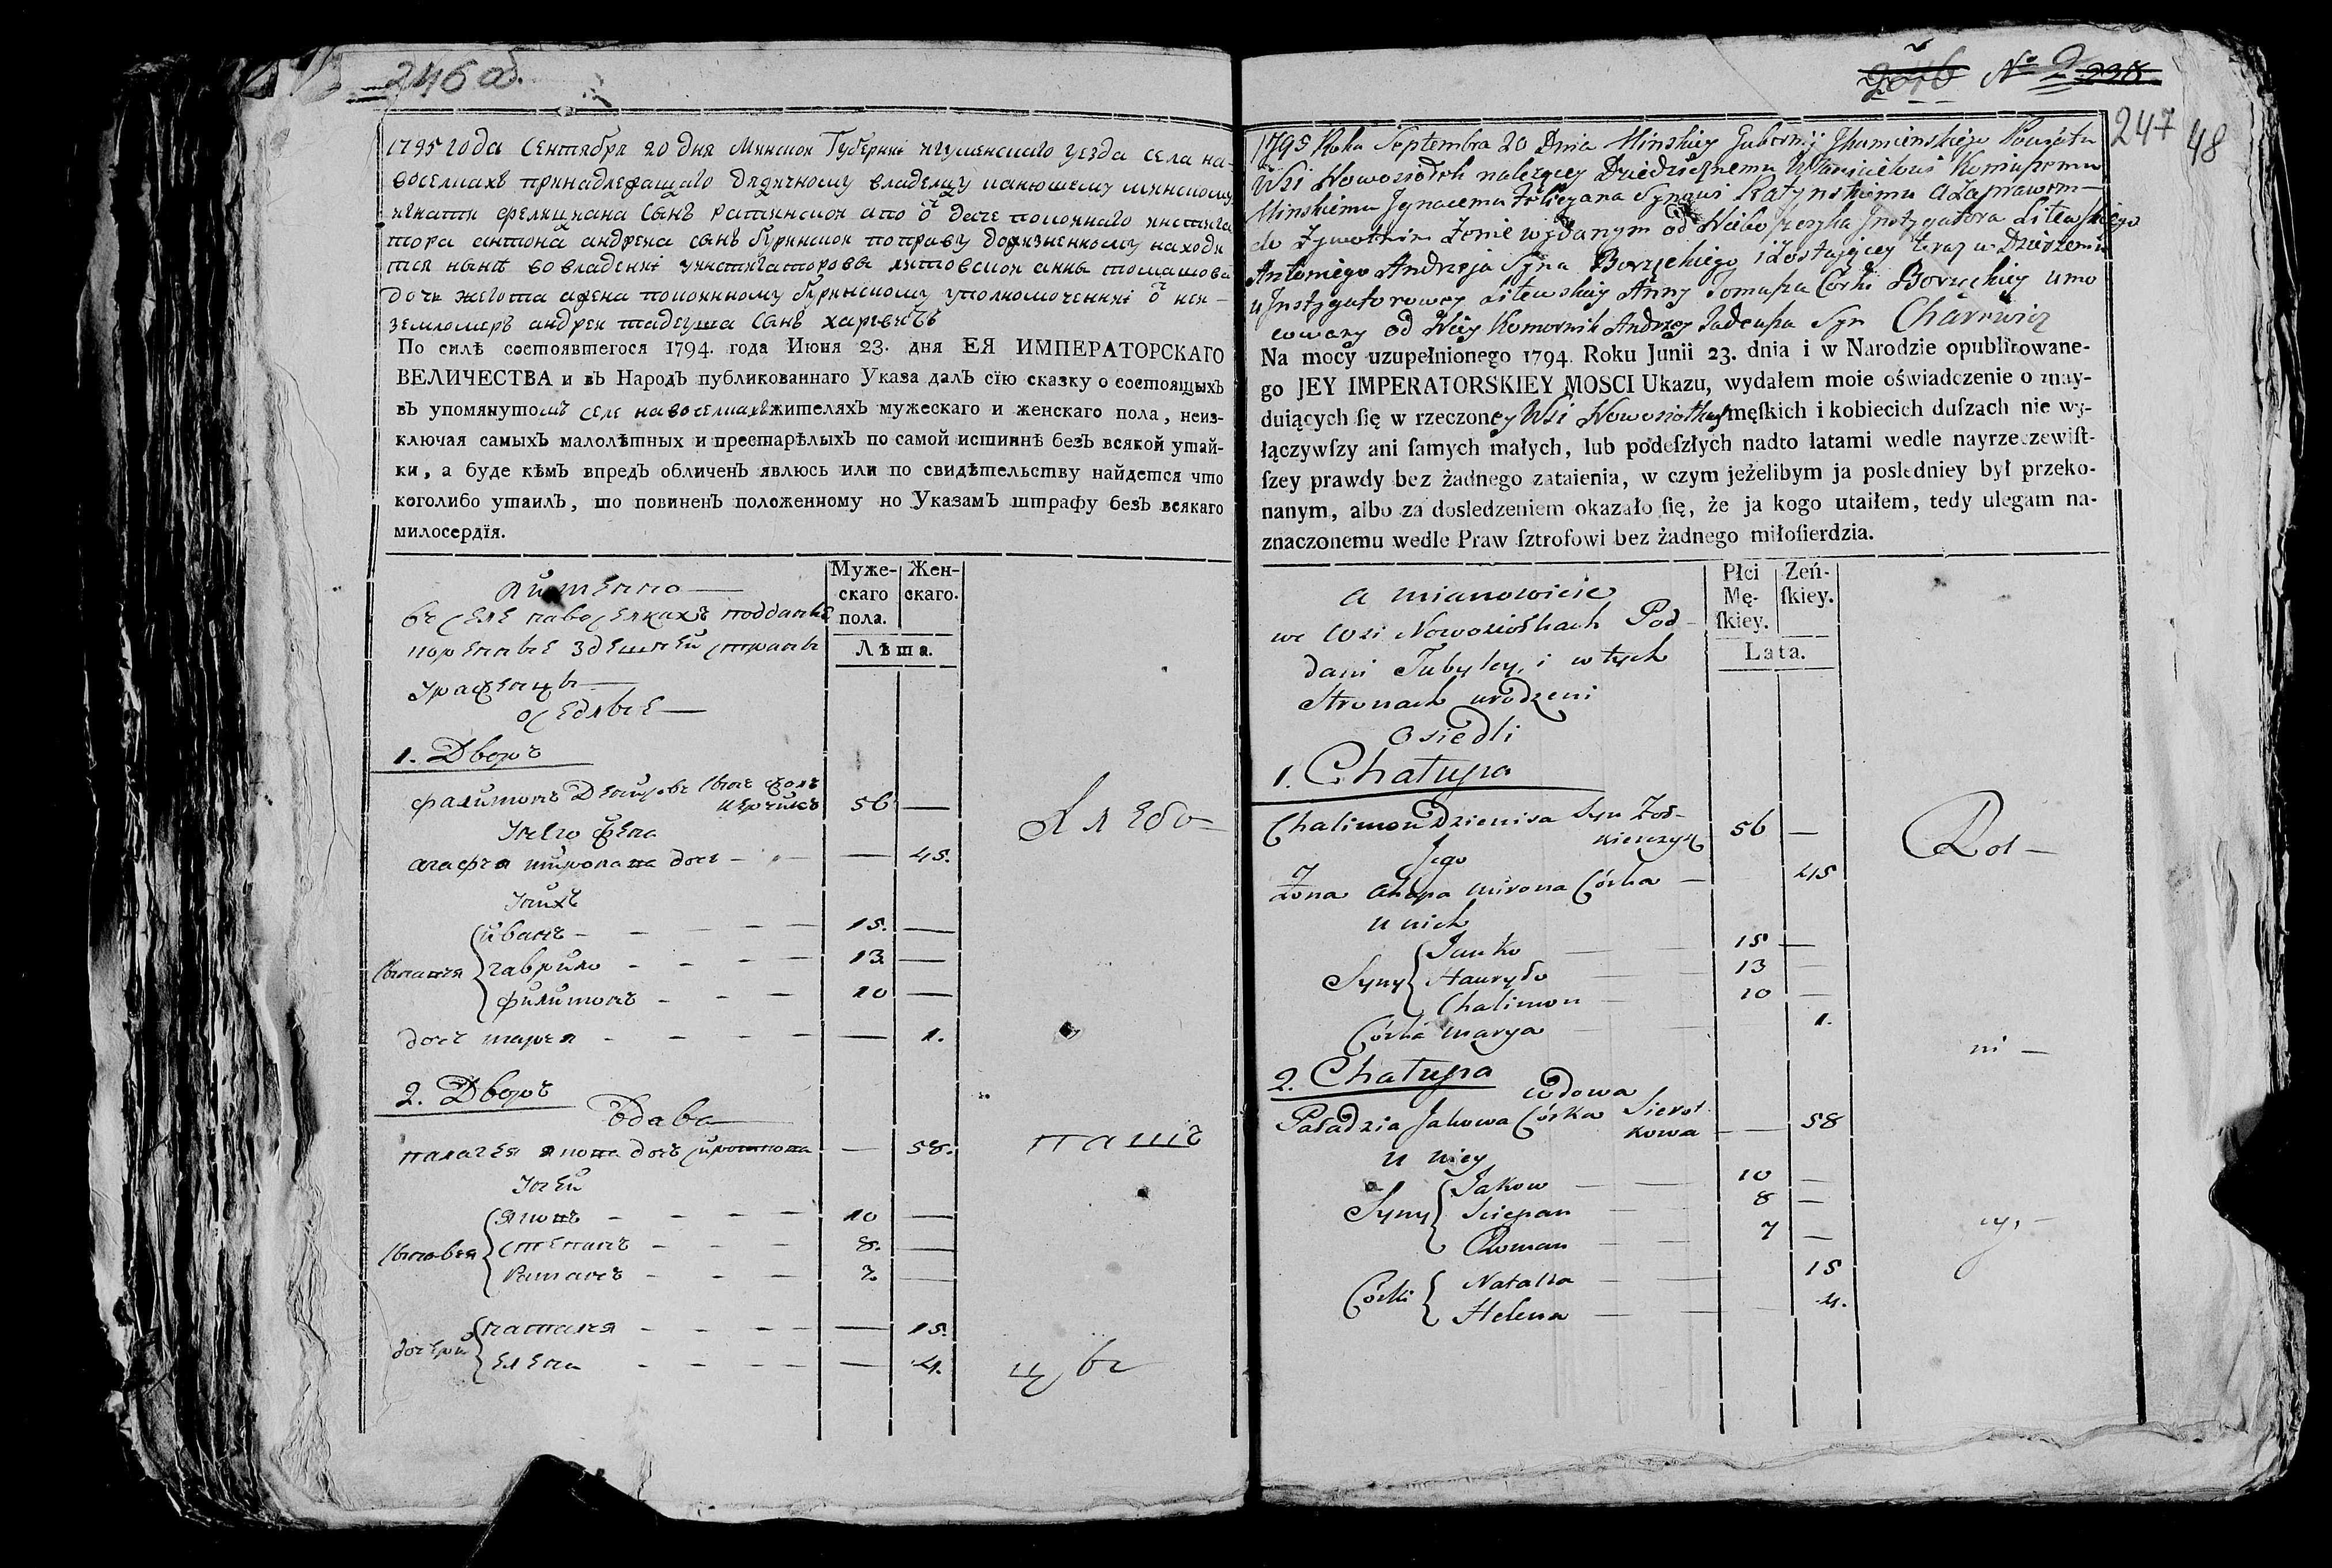 246 об.
1795 года Сентября 20 дня Минской Губернии Игуменскаго уезда села на-
воселкахъ принадлежащаго дядичному владелцу конюшему минскому
игнати фелициана сынъ ратинской а по
тора антона андрея сынъ бурински по праву находи
тся ныне во владении инстигаторовы литовской анны томашова
дочь
землемеръ андрей тадеуша сынъ харевичъ
По силѣ состоявшегося 1794. года Июня 23. дня ЕЯ ИМПЕРАТОРСКАГО
ВЕЛИЧЕСТВА и въ Народъ публикованнаго Указа далъ сїю сказку о состоящыхъ
въ упомянутомъ селе навоселкахъ жителяхъ мужескаго и женскаго пола, неиз-
ключая самыхъ малолѣтныхъ и престарѣлыхъ по самой истиннѣ безъ всякой утай-
ки, а буде кѣмъ впредъ обличенъ явлюсь или по свидѣтельству найдется что
коголибо утаилъ, то повиненъ положенному по Указамъ штрафу безъ всякаго
милосердїя.
Муже-
скаго
пола.
Жен-
скаго.
Лѣта.
имънно
въ селе навоселкахъ подданые
коренные здешней страны
уроженцы
оседлые
1. Дворъ
Филимонъ Денисовъ сынъ
56 —
Унего жена
агафья мирона дочь — 45.
Унихъ
сыновья
иванъ - 15. —
гаврило - 13 —
филимонъ - 10 —
дочь марья - — 1.
2. Дворъ
вдава
палагея якова дочь — 58.
Уней
сыновья
яковъ - 10 —
степанъ - 8. —
романъ - 7. —
дочери
наталья - — 15.
елена - — 4.
Хлебо-
паш
цы
2046 No 2 228
247 48
1795 Roku Septembra 20 Dnia Minskiey Gubernij Jhumenskiego Powiatu
Wsi Nowosiołek należącey Dziedzicznemu Właścicielowi Koniuszemu
Minskiemu Jgnacemu Felicyana Synowi Ratynskiemu a zaprawem
do Żywotnim Żonie wydanym od Niebo szczyka Jnstygatora Litewskiego
Antoniego Andrzeja Syna Borzęckiego i Zostaiącey teraz w Dzierżeniu
u Jnstygatorowey Litewskiey Anny Tomasza Corki Borzęckiey umo
cowany od Niey Komornik Andrzey Tadeusza Syn Charewicz
Na mocy uzupełnionego 1794. Roku Junii 23. dnia i w Narodzie opublikowane-
go JEY IMPERATORSKIEY MOSCI Ukazu, wydałem moie oświadczenie o znay-
duiących ſię w rzeczoney Wsi Nowosiołkach męſkich i kobiecich duſzach nie wy-
łączywſzy ani ſamych małych, lub podeſzłych nadto latami wedle nayrzeczewiſt-
ſzey prawdy bez żadnego zataienia, w czym jeżelibym ja posledniey był przeko-
nanym, albo za dosledzeniem okazało ſię, że ja kogo utaiłem, tedy ulegam na-
znaczonemu wedle Praw ſztrofowi bez żadnego miłoſierdzia.
Płci
Mę-
ſkiey.
Zeń-
ſkiey.
Lata.
a mianowicie
we Wsi Nowosiołkach Pod-
dani Tubylcy, i w tych
Stronach urodzeni
Osiedli
1. Chałupa
Chalimon Dzienisa Syn Żoł-
nierczyk 56 —
Jego
Żona Ahapa Mirona Córka — 45
u nich
Syny
Janko — 15 —
Hauryło — 13 —
Chalimon — 10 —
Córka Marya — 1.
2. Chałupa
wdowa
Paładzia Jakowa Córka Sierot
kowa — 58
u niey
Syny
Jakow — 10 —
Sciepan — 8 —
Roman — 7 —
Córki
Natalia — 15
Helena — 4.
Rol —
ni —
cy, —